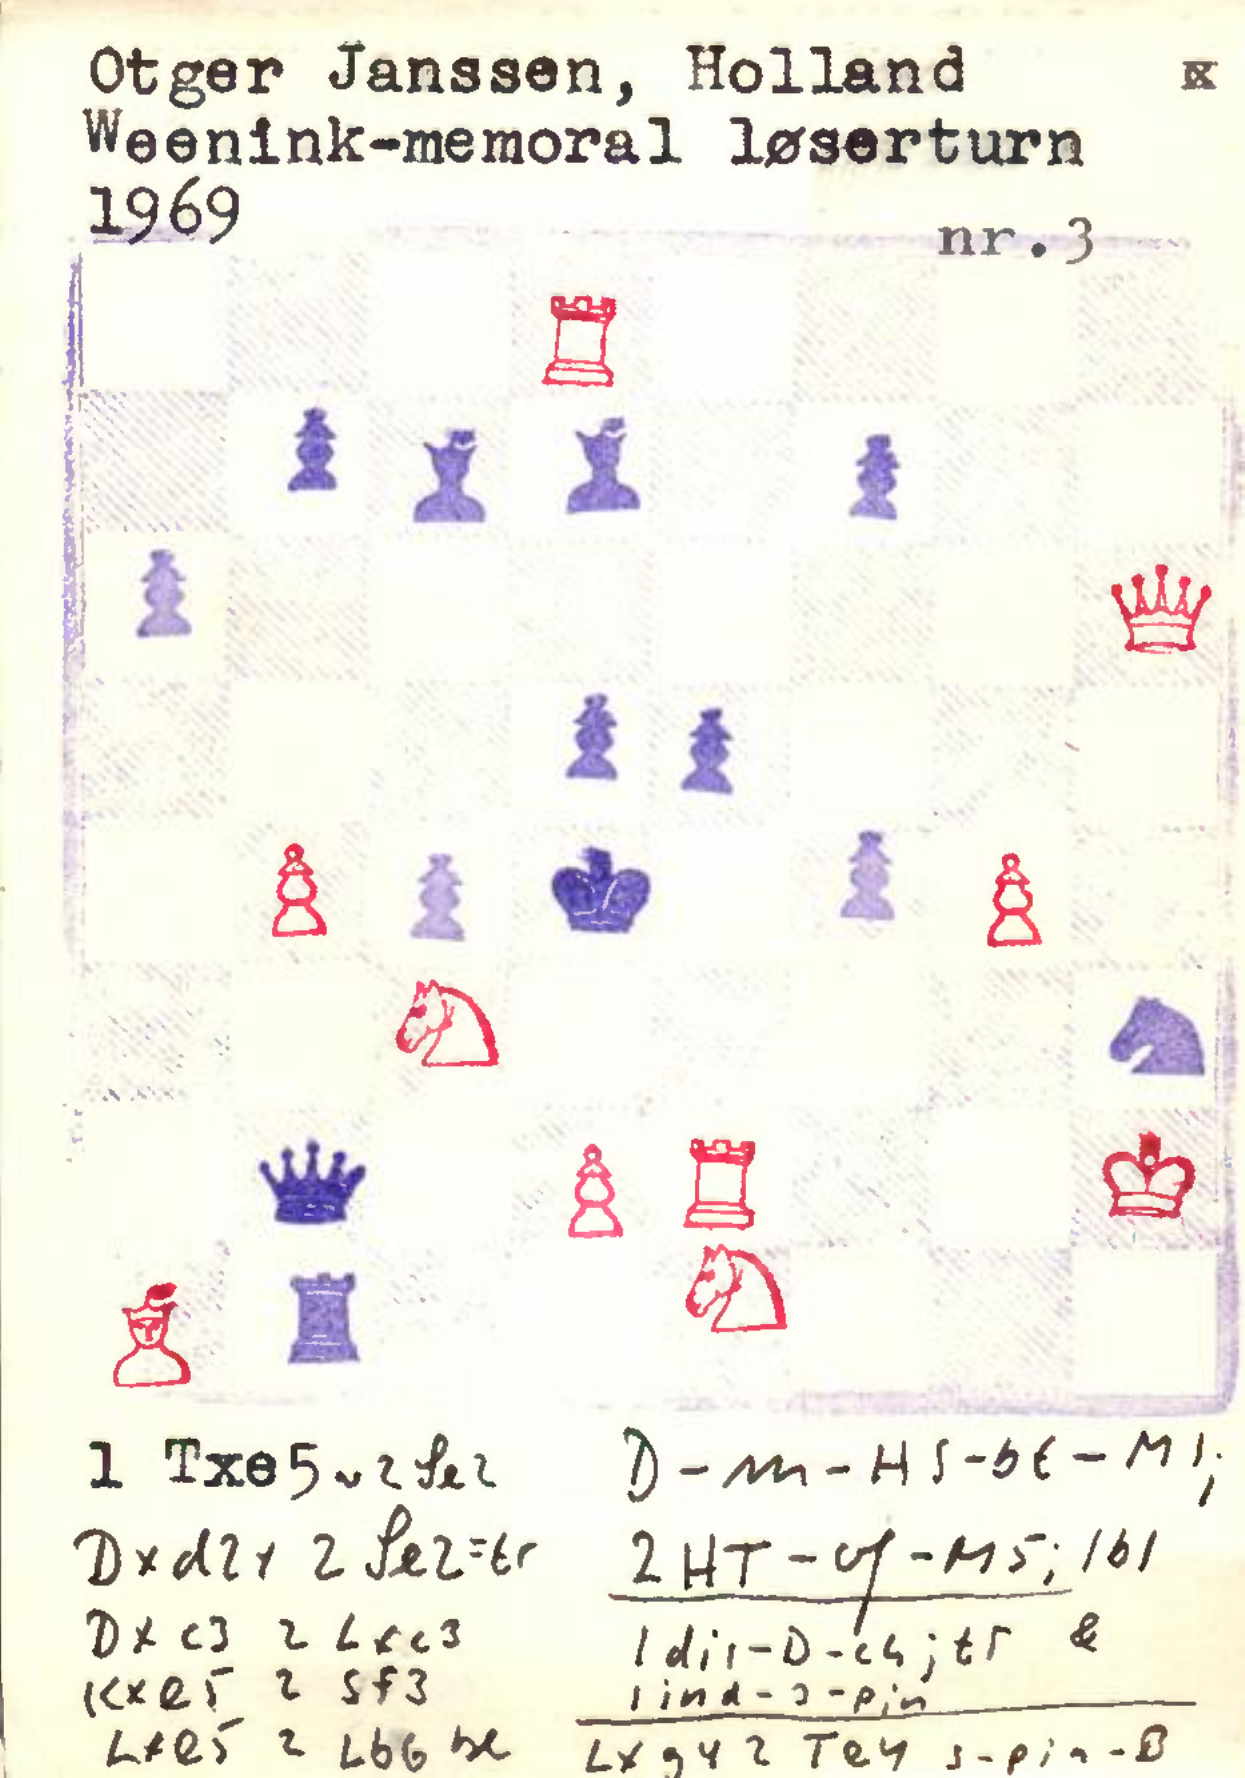 Otger Janssen, Holland x
Weenink-memoral løserturn
1969
nr.3
1 Txe5 ~ 2 Se2
Dxd2+ 2 Se2=tr
Dxc3 2 Lxc3
Kxe5 2 Sf3
Lxe5 2 Db6 bl
D-m-HS-bt-M1;
2HT-vf-M5; 1b1
1dis-D-ch; ts &
1ind-s-pin
Lxg4 2 Te4 s-pin-B